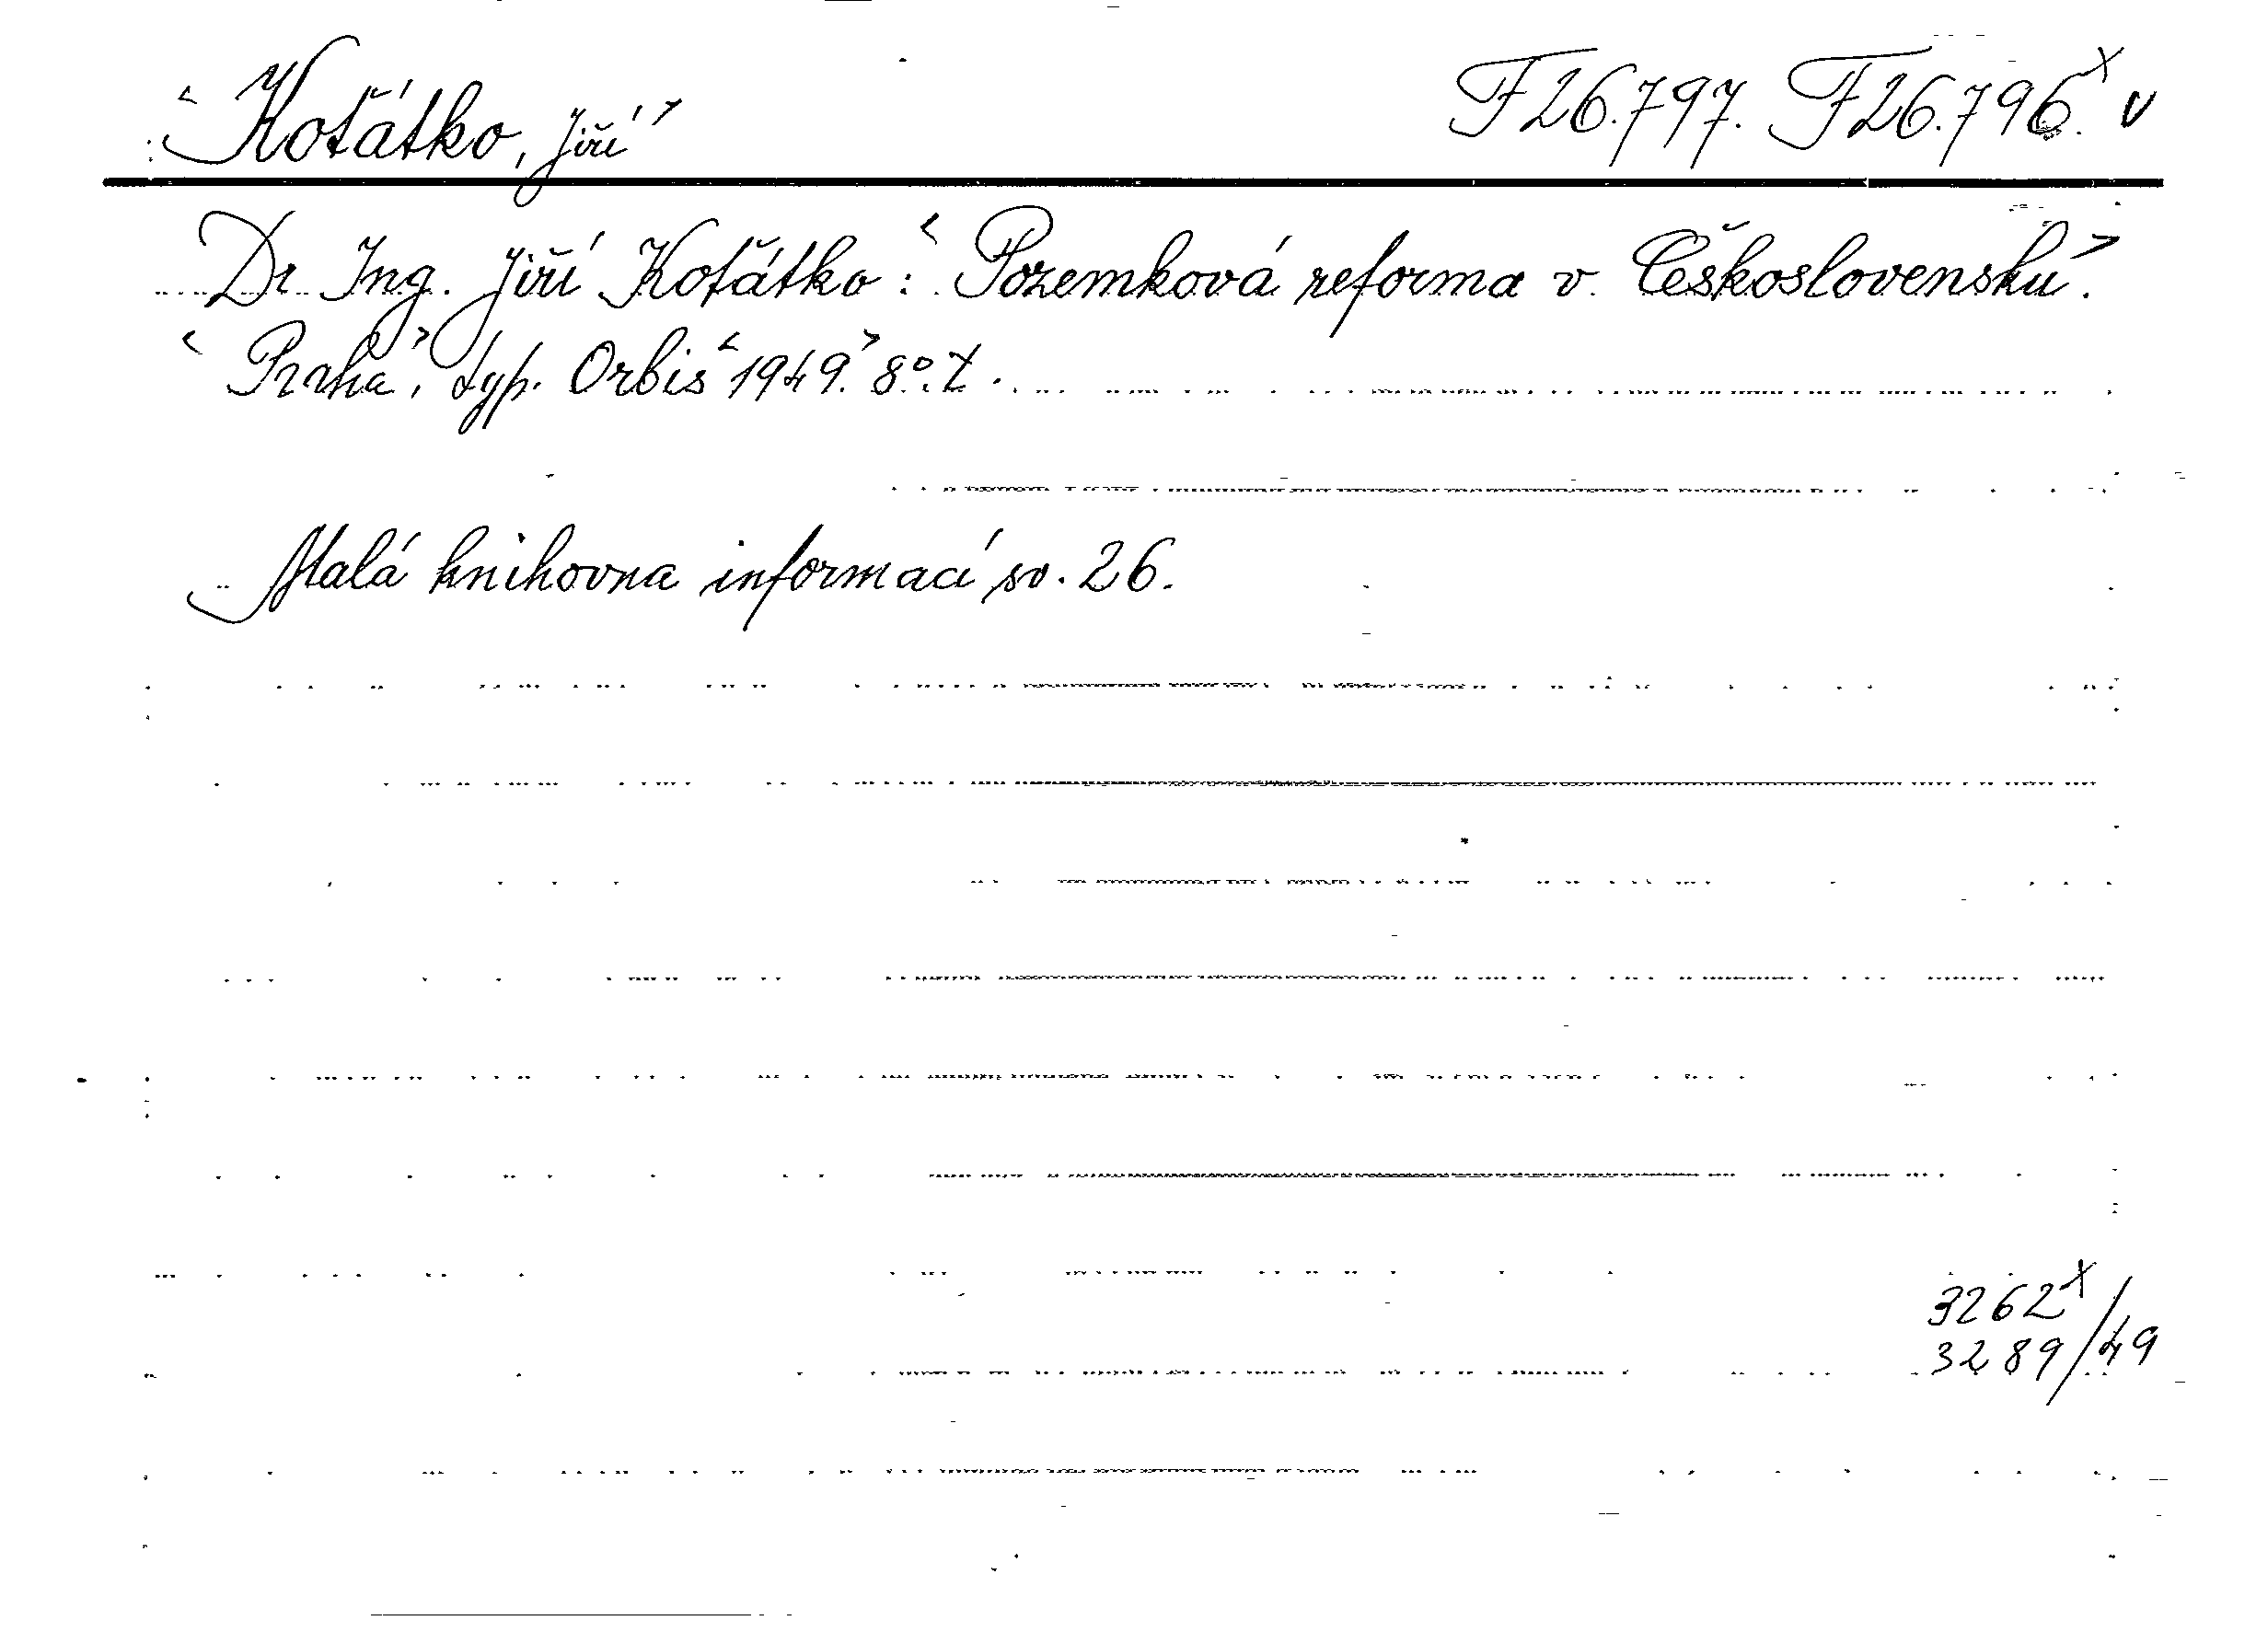 <Koťátko, Jiří> F 26.797. F 26.796.x v
Dr Ing. Jiří Koťátko: <Pozemková reforma v Československu>.
<Praha>, typ. Orbis <1949.> 8°.
Malá knihovna informací sv. 26.
3262x
3289/49